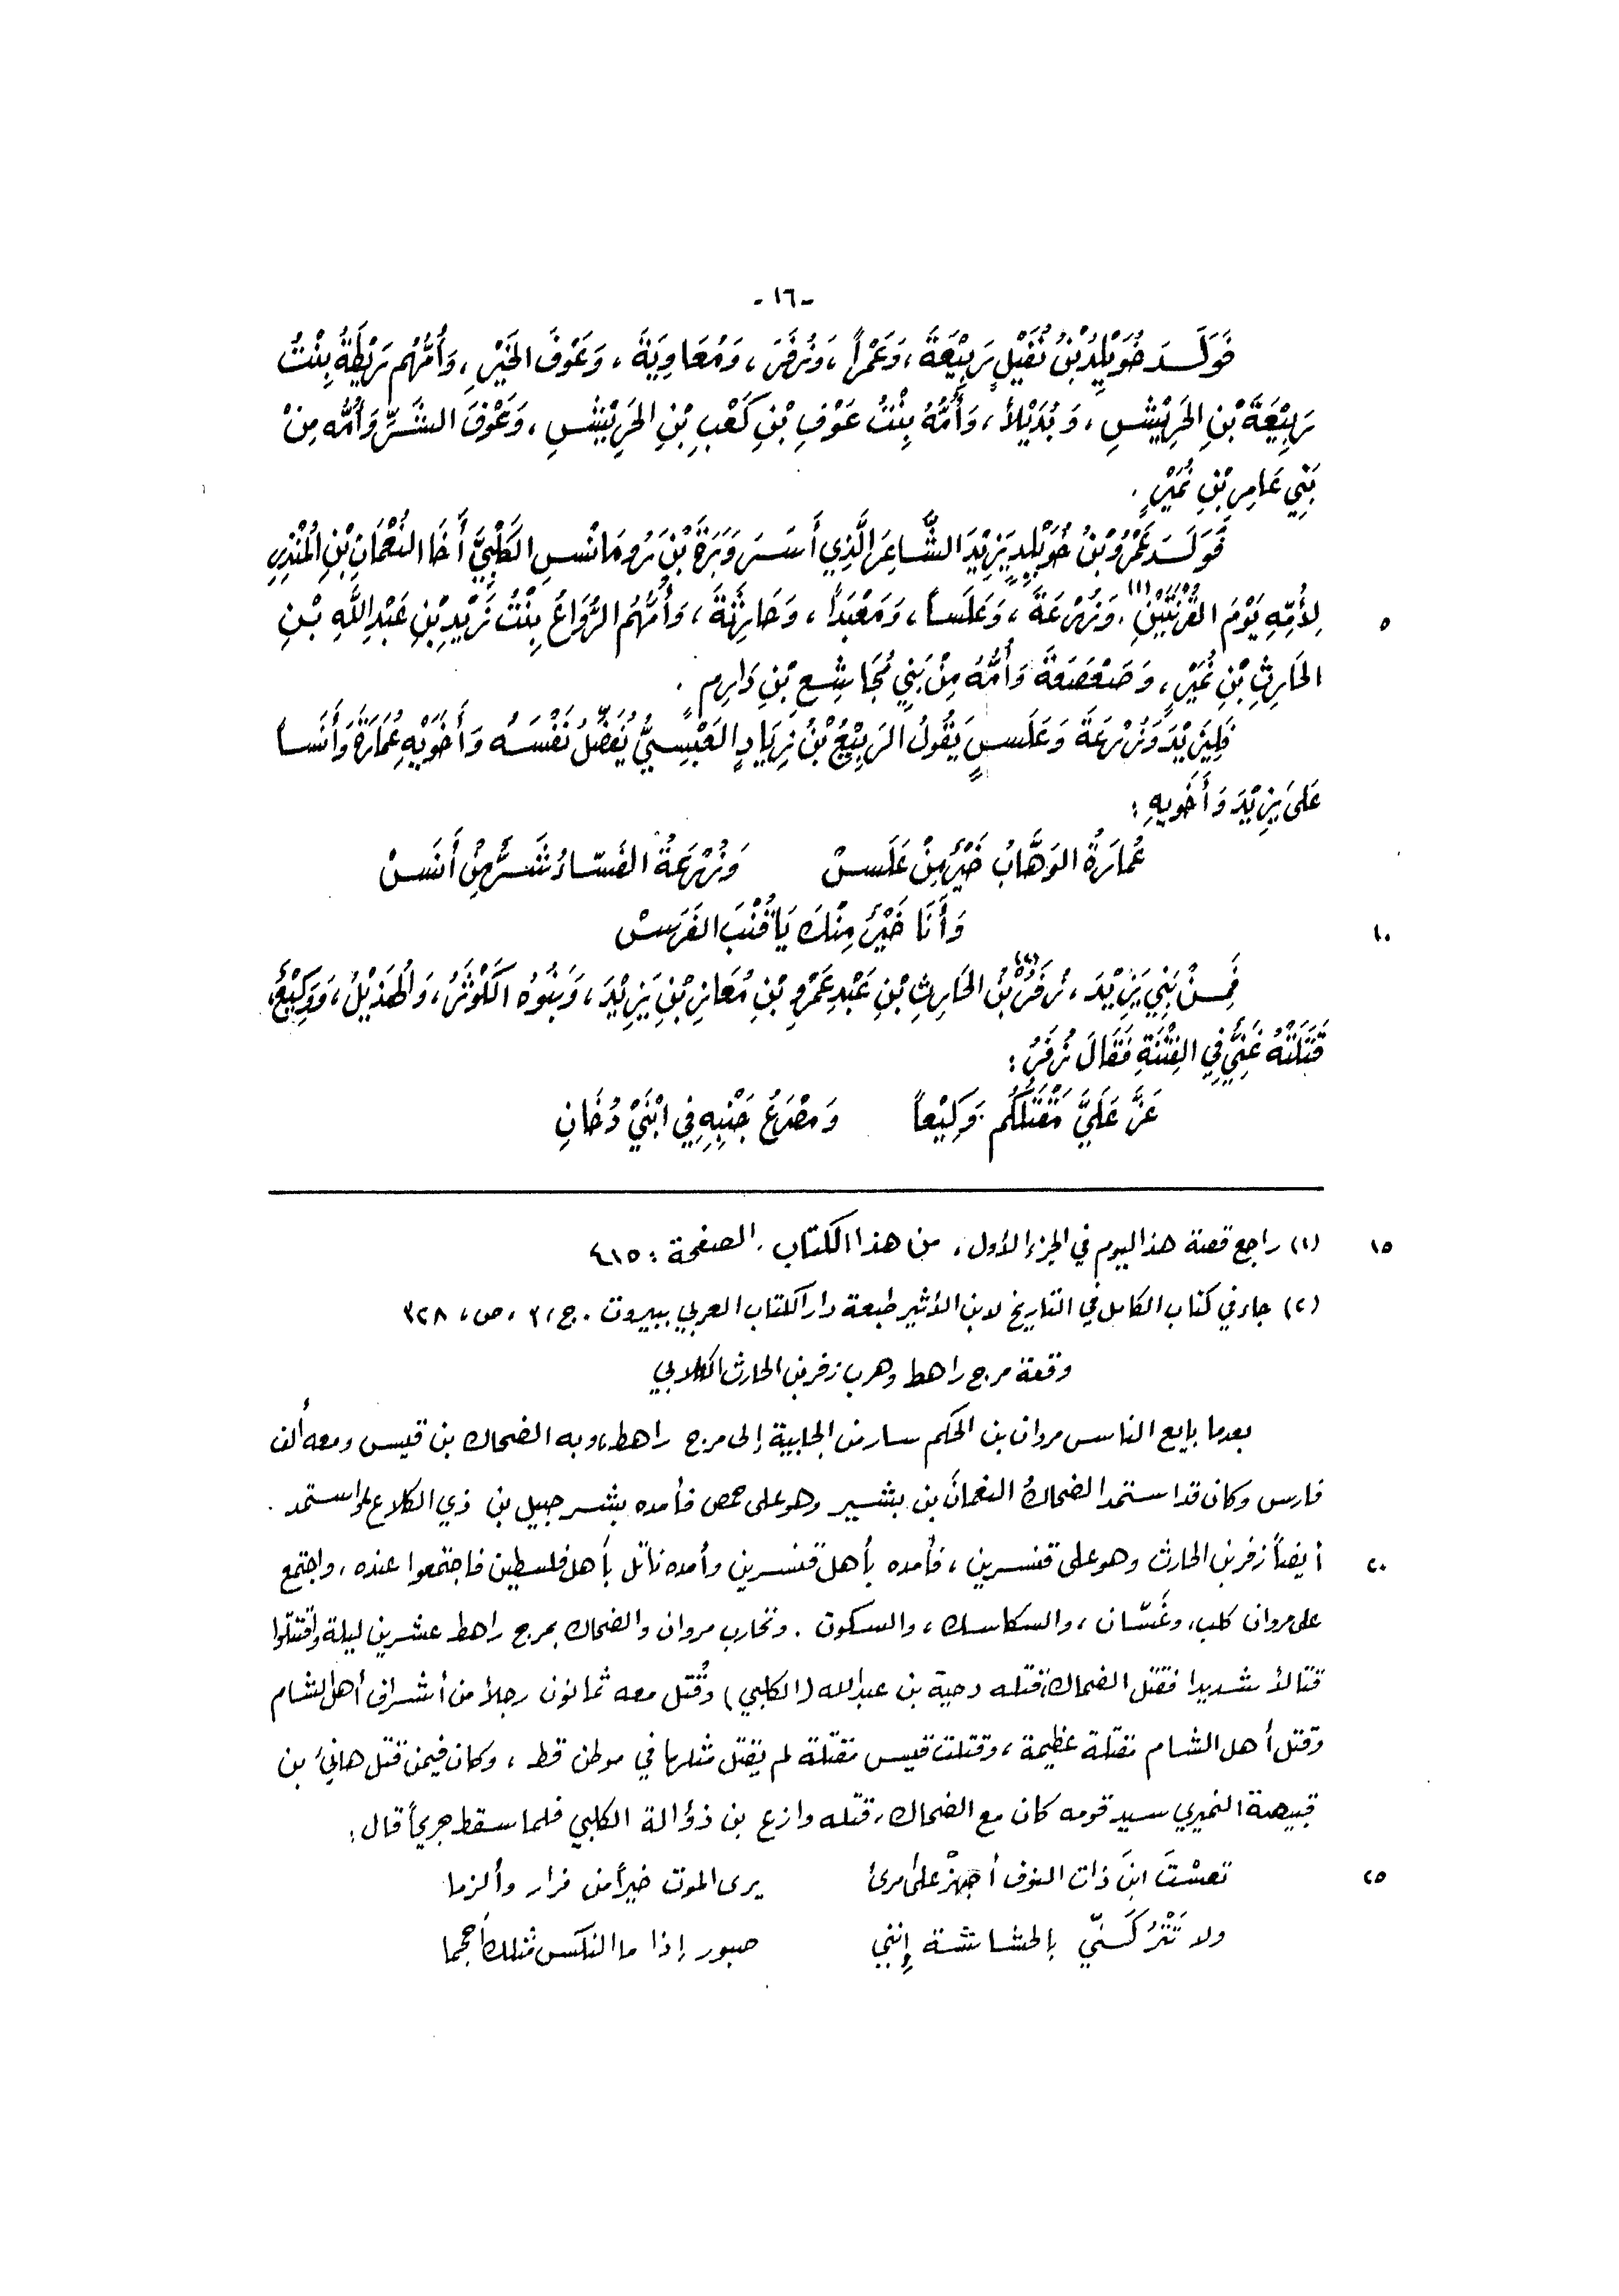 -١٦-
فَوَلَدَ خُوَيْلِدُ بْنُ نُفَيْلٍ رَبِيْعَةَ، وَعَمْراً، وَزُفَرَ، وَمُعَاوِيَةَ، وَعَوْفَ الخَيْرِ، وَأُمُّهُم رَيْطَةُ بِنْتُ
رَبِيْعَةَ بْنِ الحَرِيْشِ، وَبُدَيْلاً، وَأُمُّهُ بِنْتُ عَوْفِ بْنِ كَعْبِ بْنِ الحَرِيْشِ، وَعَوْفَ الشَّرِّ وَأُمُّه مِنْ
بَنِي عَامِرِ بْنِ نُمَيْرٍ.
فَوَلَدَ عَمْرُو بْنُ خُوَيْلِدٍ يَزِيْدَ الشَّاعِرَ الَّذِي أَسَرَ وَبَرَةَ بْنَ رُومَانْسِ الكَلْبِيَّ أَخَا النُّعْمَانِ بْنِ الْمُنْذِرِ
لِأُمِّهِ يَوْمَ القُرْنَتَيْنِ(١)، وَزُرْعَةَ، وَعَلَساً، وَمَعْبَداً، وَحَارِثَةَ، وَأُمُّهُم الرُّوَاعُ بِنْتُ زَيْدِ بْنِ عَبْدِ اللهِ بْنِ ٥
الحَارِثِ بْنِ نُمَيْرٍ، وَصَعْصَعَةَ وَأُمُّهُ مِنْ بَنِي مُجَاشِعِ بْنِ دَارِمٍ.
فَلِيَزِيْدَ وَزُرْعَةَ وَعَلَسٍ يَقُولُ الرَبِيْعُ بْنُ زِيَادٍ العَبْسِيُّ يُفَضِّلُ نَفْسَهُ وَأَخَوَيْهِ عُمَارَةَ وَأَنَساً
عَلَى يَزِيْدَ وَأَخَوِيهِ:
عُمارَةُ الوَهَّابُ خَيْرٌ مِنْ عَلَسْ وَزُرْعَةُ الفَسّاءُ شَرٌّ مِنْ أَنَسْ
وَأَنَا خَيْرٌ مِنْكَ يَا قُنْبَ الفَرَسْ ١٠
فَمِنْ بَنِي يَزِيْدَ، زُفَرُ(٢) بْنُ الحَارِثِ بْنِ عَبْدِ عَمْرِو بْنِ مُعَازِ بْنِ يَزِيْدَ، وَبَنُوهُ الكَوْثَرُ، وَالهُذَيْلُ، وَوَكِيْعٌ،
قَتَلَتْهُ غَنِيٌّ فِي الفِتْنَةِ فَقَالَ زُفَرُ:
عَزَّ عَلَيَّ مَقْتَلُكُم وَكِيْعاً وَمَصْرَعُ جَنْبِهِ فِي ابْنَيْ دُخَانِ
(١) راجع قصة هذا اليوم في الجزء الأول، من هذا الكتاب. الصفحة: ٤١٥ ١٥
(٢) جاء في كتاب الكامل في التاريخ لابن الأثير طبعة دار الكتاب العربي ببيروت. ج،٣ ،ص، ٣٢٨
وقعة مرج راهط وهرب زفر بن الحارث الكلابي
بعدما بايع الناس مروان بن الحكم سار من الجابية إلى مرج راهط، وبه الضحاك بن قيس ومعه ألف
فارس وكان قد استمد الضحاكُ النعمانَ بن بشير وهو على حمص فأمده بشرحبيل بن ذي الكلاع واستمد.
أيضاً زفر بن الحارث وهو على قنسرين، فأمده بأهل قنسرين وأمده ناتل بأهل فلسطين فاجتمعوا عنده، واجتمع ٢٠
على مروان كلب، وغَسّان، والسكاسك، والسكون. وتحارب مروان والضحاك بمرج راهط عشرين ليلة واقتتلوا
قتالاً شديداً فقتل الضحاك، قتله دحية بن عبدالله (الكلبي) وقُتل معه ثمانون رجلاً من أشراف أهل الشام
وقتل أهل الشام مقتلة عظيمة، وقتلت قيس مقتلة لم يقتل مثلها في موطن قط، وكان فيمن قتل هانئ بن
قبيصة النميري سيد قومه كان مع الضحاك، قتله وازع بن ذؤالة الكلبي فلما سقط جريحاً قال:
تعسْتَ ابنَ ذات النوف أجهزْ على امرئ يرى الموت خيراً من فرار وألزما ٢٥
ولا تَتْرُكَنّي بالحشاشة إنني صبور إذا ما النكس مثلك أحجما